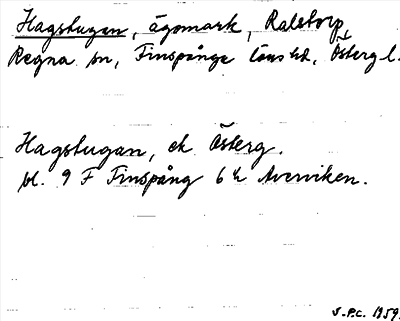 Hagstugan, ägomark, Ralstorp,
Regna sn, Finspånga läns hd, Österg l.
Hagstugan, ek Österg.
bl. 9 F Finspång 6 h Averviken.
S.P.C. 1959.